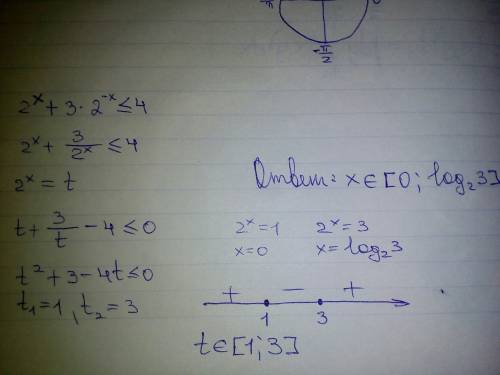 π 0
-π/2
2^x + 3 · 2^-x ≤ 4
2^x + 3/2^x ≤ 4
2^x = t
t + 3/t - 4 ≤ 0
t² + 3 - 4t ≤ 0
t₁ = 1, t₂ = 3
Ответ: x ∈ [0; log₂3]
2^x = 1 2^x = 3
x = 0 x = log₂3
+ - +
1 3
t ∈ [1; 3]